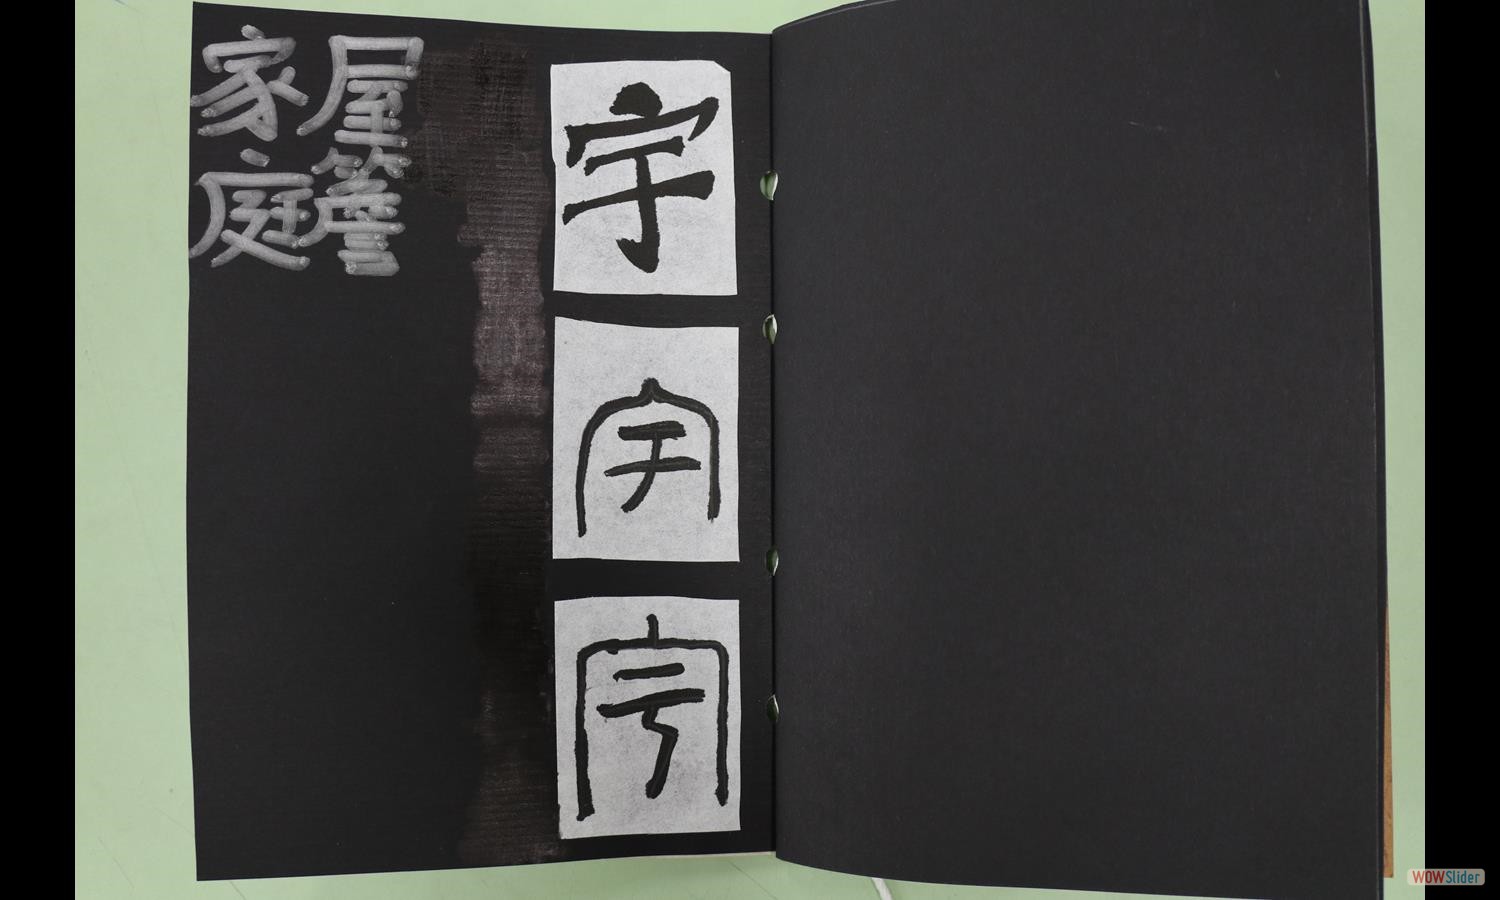 宇
宇
宇
屋簷
家庭
WOWSlider